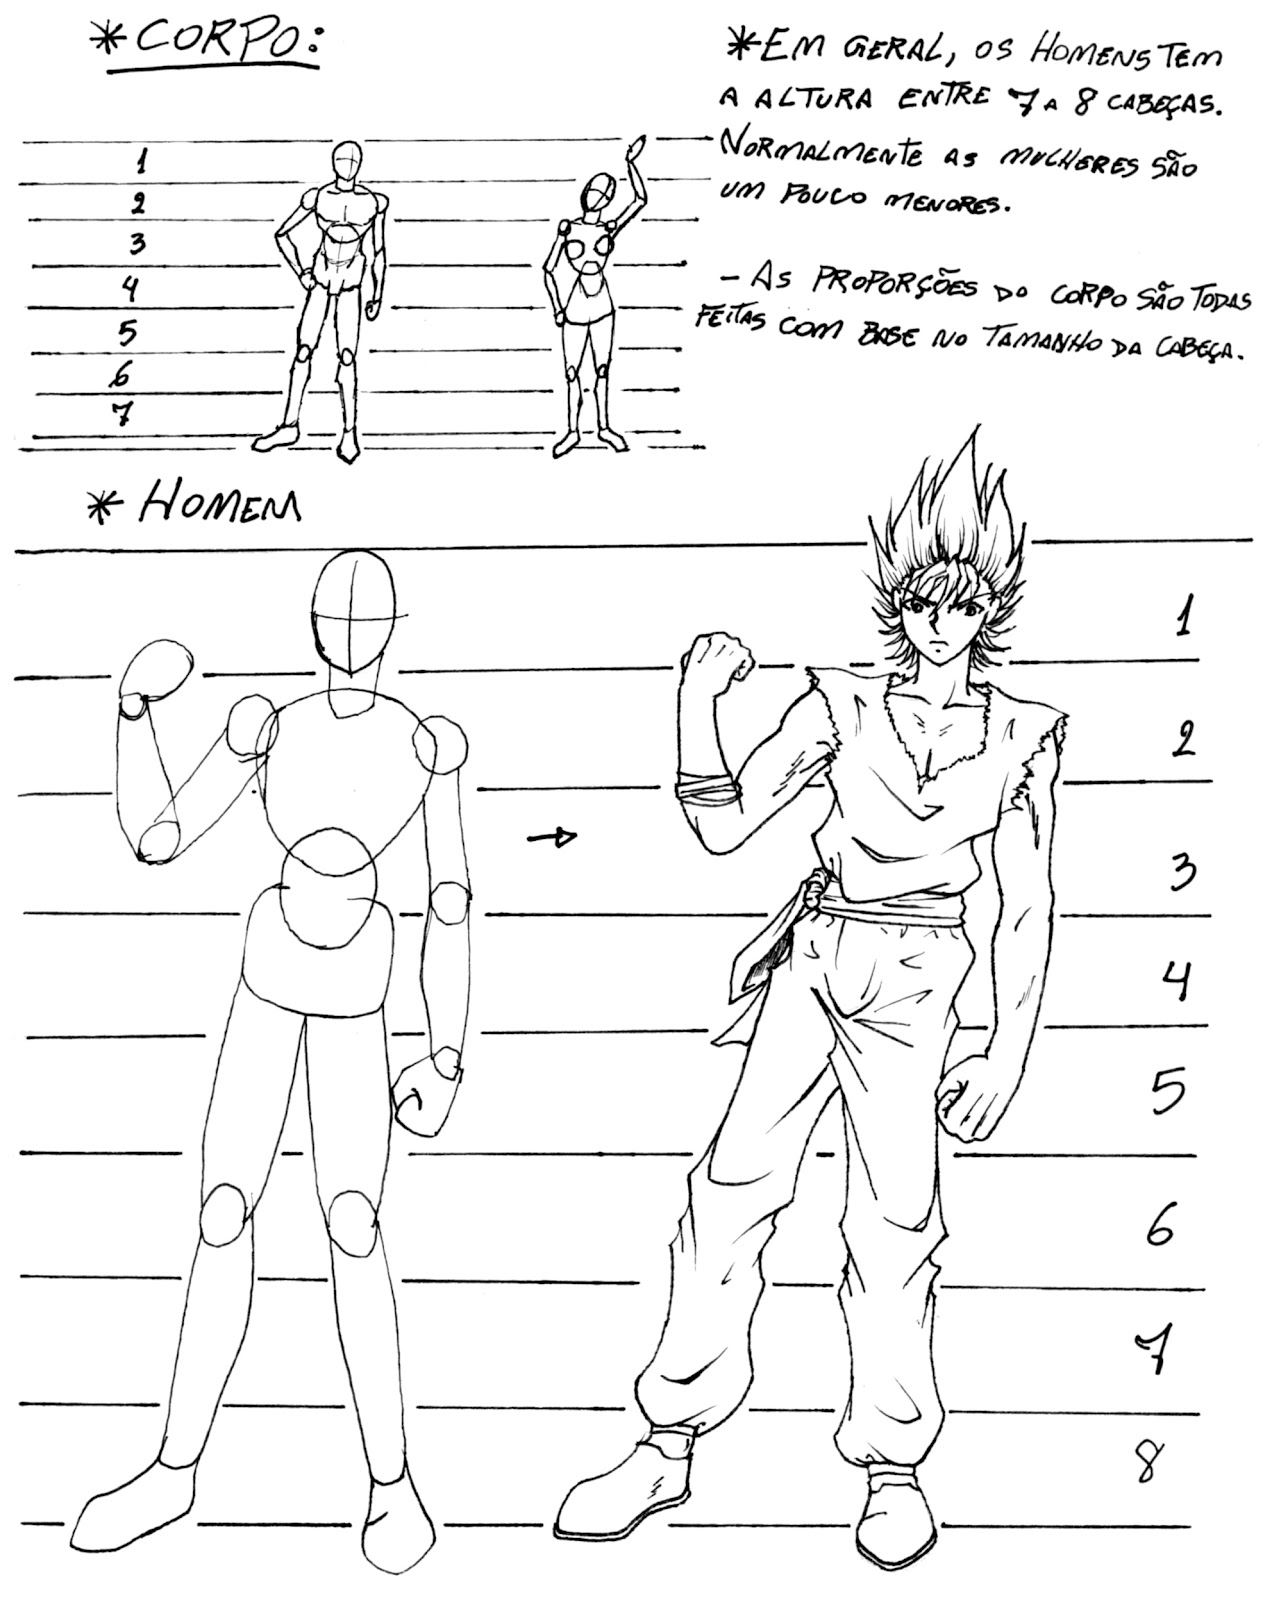 *CORPO:
*EM GERAL, OS HOMENS TEM
A ALTURA ENTRE 7 A 8 CABEÇAS.
NORMALMENTE AS MULHERES SÃO
UM POUCO MENORES.
- AS PROPORÇÕES DO CORPO SÃO TODAS
FEITAS COM BASE NO TAMANHO DA CABEÇA.
1
2
3
4
5
6
7
* HOMEM
1
2
3
4
5
6
7
8